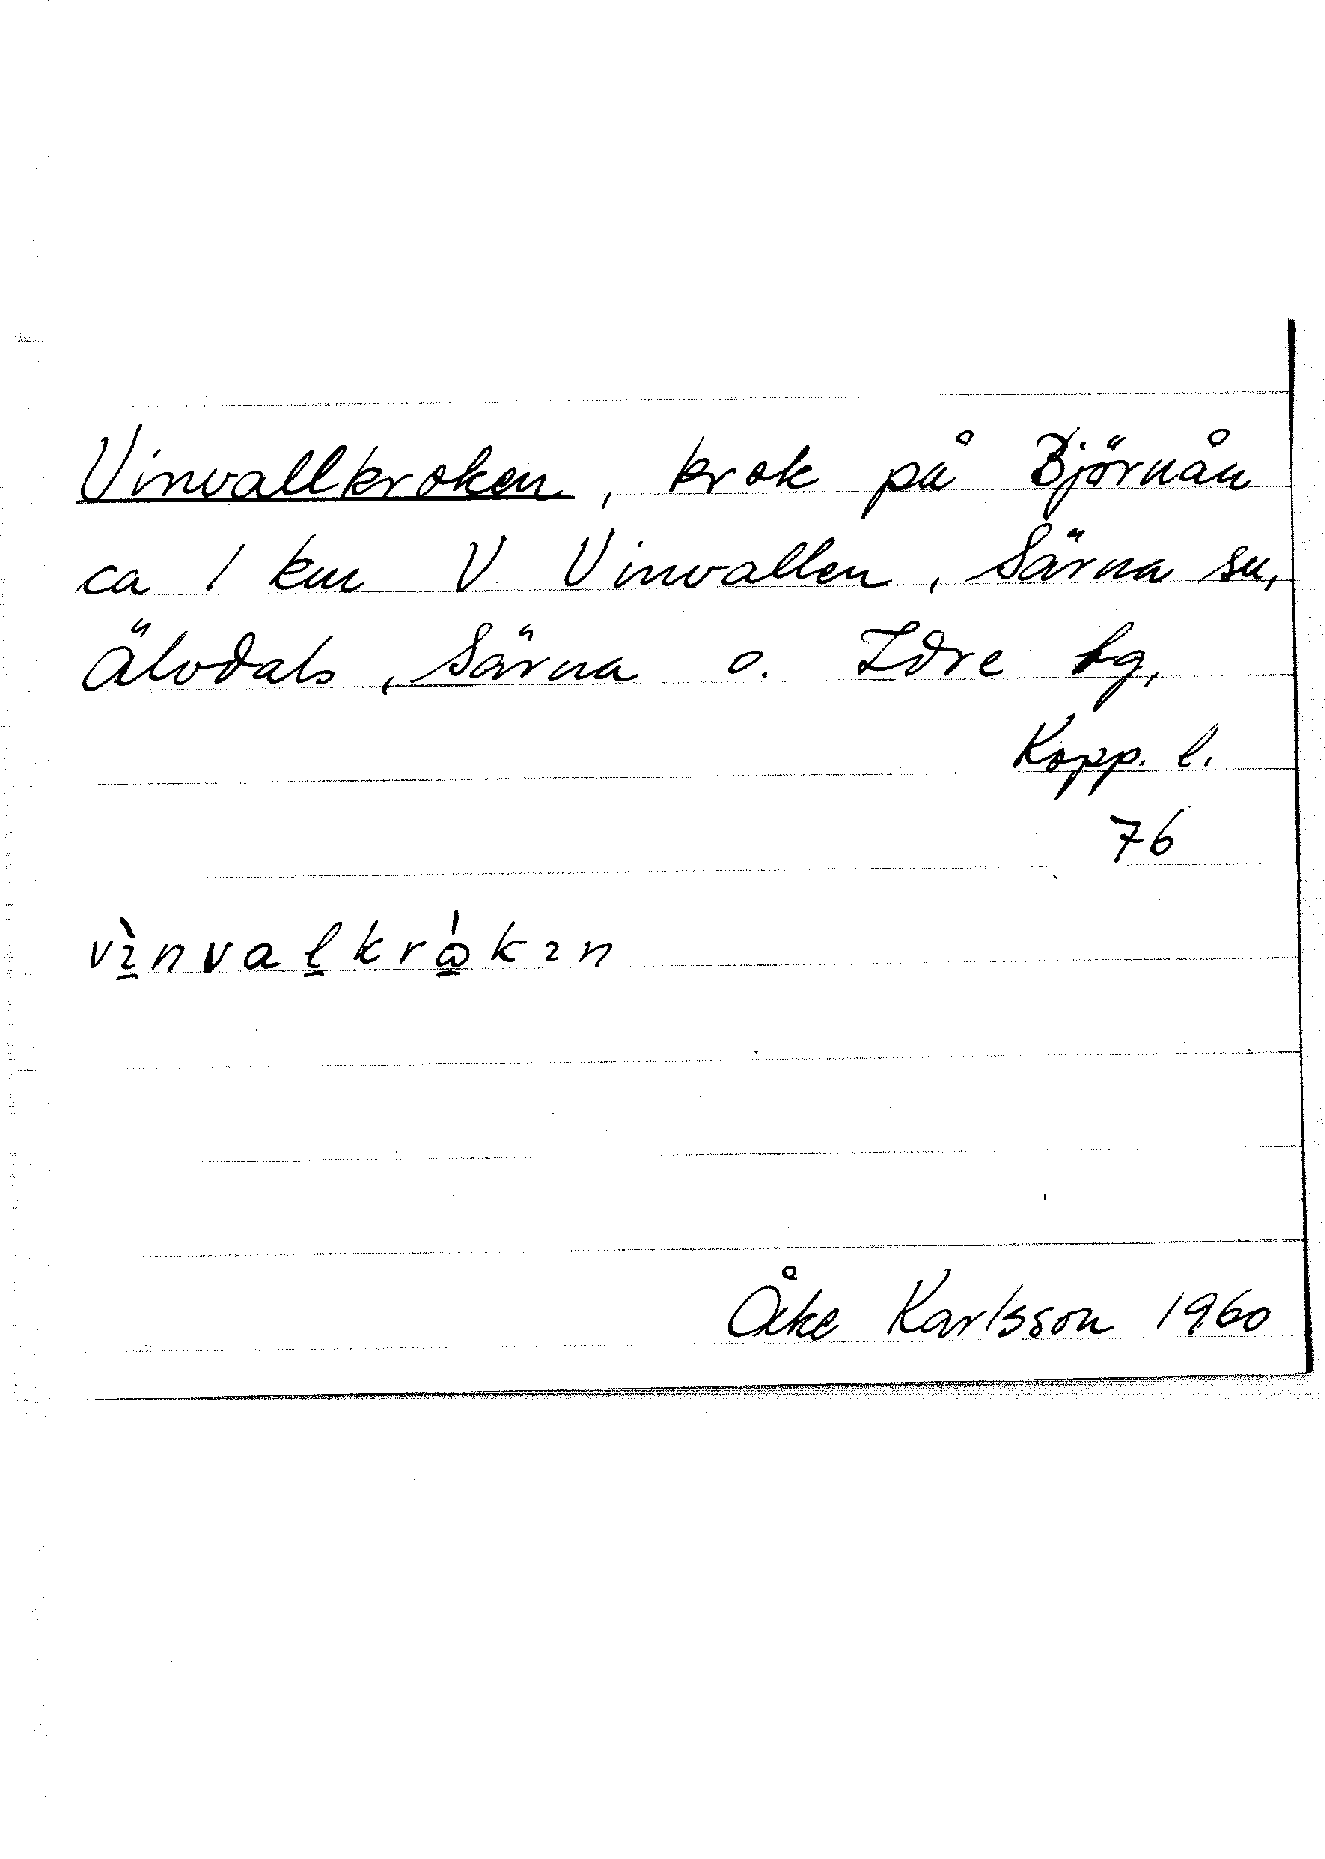 Vinvallkroken, krok på Björnån
ca 1 km V Vinvallen, Särna sn,
Älvdals, Särna o. Idre tg,
Kopp. l.
76
Åke Karlsson 1960